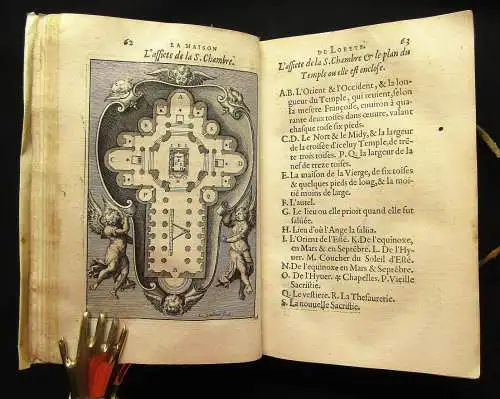 62 LA MAISON
L'assiete de la S. Chambre.
DE LORETE. 63
L'assiete de la S. Chambre & le plan du
Temple ou elle est enclose.
A.B. L'Orient & l'Occident, & la lon-
gueur du Temple, qui reuient, selon
la mesure Françoise, enuiron à qua-
rante deux toises dans œuure, valant
chasque toise six pieds.
C.D. Le Nort & le Midy, & la largeur
de la croisée d'iceluy Temple, de trē-
te trois toises. P.Q. la largeur de la
nef de treze toises.
E. La maison de la Vierge, de six toises
& quelques pieds de long, & la moi-
tié moins de large.
F. L'autel.
G. Le lieu ou elle prioit quand elle fut
saluëe.
H. Lieu d'où l'Ange la salüa.
I. L'Orient de l'Esté. K. De l'equinoxe,
en Mars & en Septēbre. L. De l'Hy-
uer. M. Coucher du Soleil d'Esté.
N. De l'equinoxe en Mars & Septēbre.
O. De l'Hyuer. Chapelles. P. Vieille
Sacristie.
Q. Le vestiere. R. La Thesaurerie.
S. La nouuelle Sacristie.